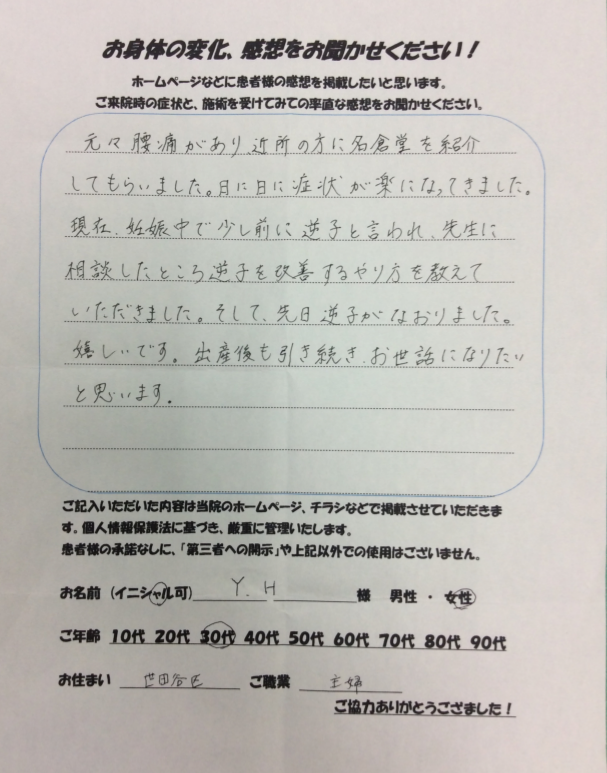 お身体の変化、感想をお聞かせください！
ホームページなどに患者様の感想を掲載したいと思います。
ご来院時の症状と、施術を受けてみての率直な感想をお聞かせください。
元々腰痛があり近所の方に名倉堂を紹介
してもらいました。日に日に症状が楽になってきました。
現在、妊娠中で少し前に逆子と言われ、先生に
相談したところ逆子を改善するやり方を教えて
いただきました。そして、先日逆子がなおりました。
嬉しいです。出産後も引き続き、お世話になりたい
と思います。
ご記入いただいた内容は当院のホームページ、チラシなどで掲載させていただきま
す。個人情報保護法に基づき、厳重に管理いたします。
患者様の承諾なしに、「第三者への開示」や上記以外での使用はございません。
お名前（イニシャル可） Y. H 様 男性 ・ 女性
ご年齢 10代 20代 30代 40代 50代 60代 70代 80代 90代
お住まい 世田谷区 ご職業 主婦
ご協力ありがとうござました！